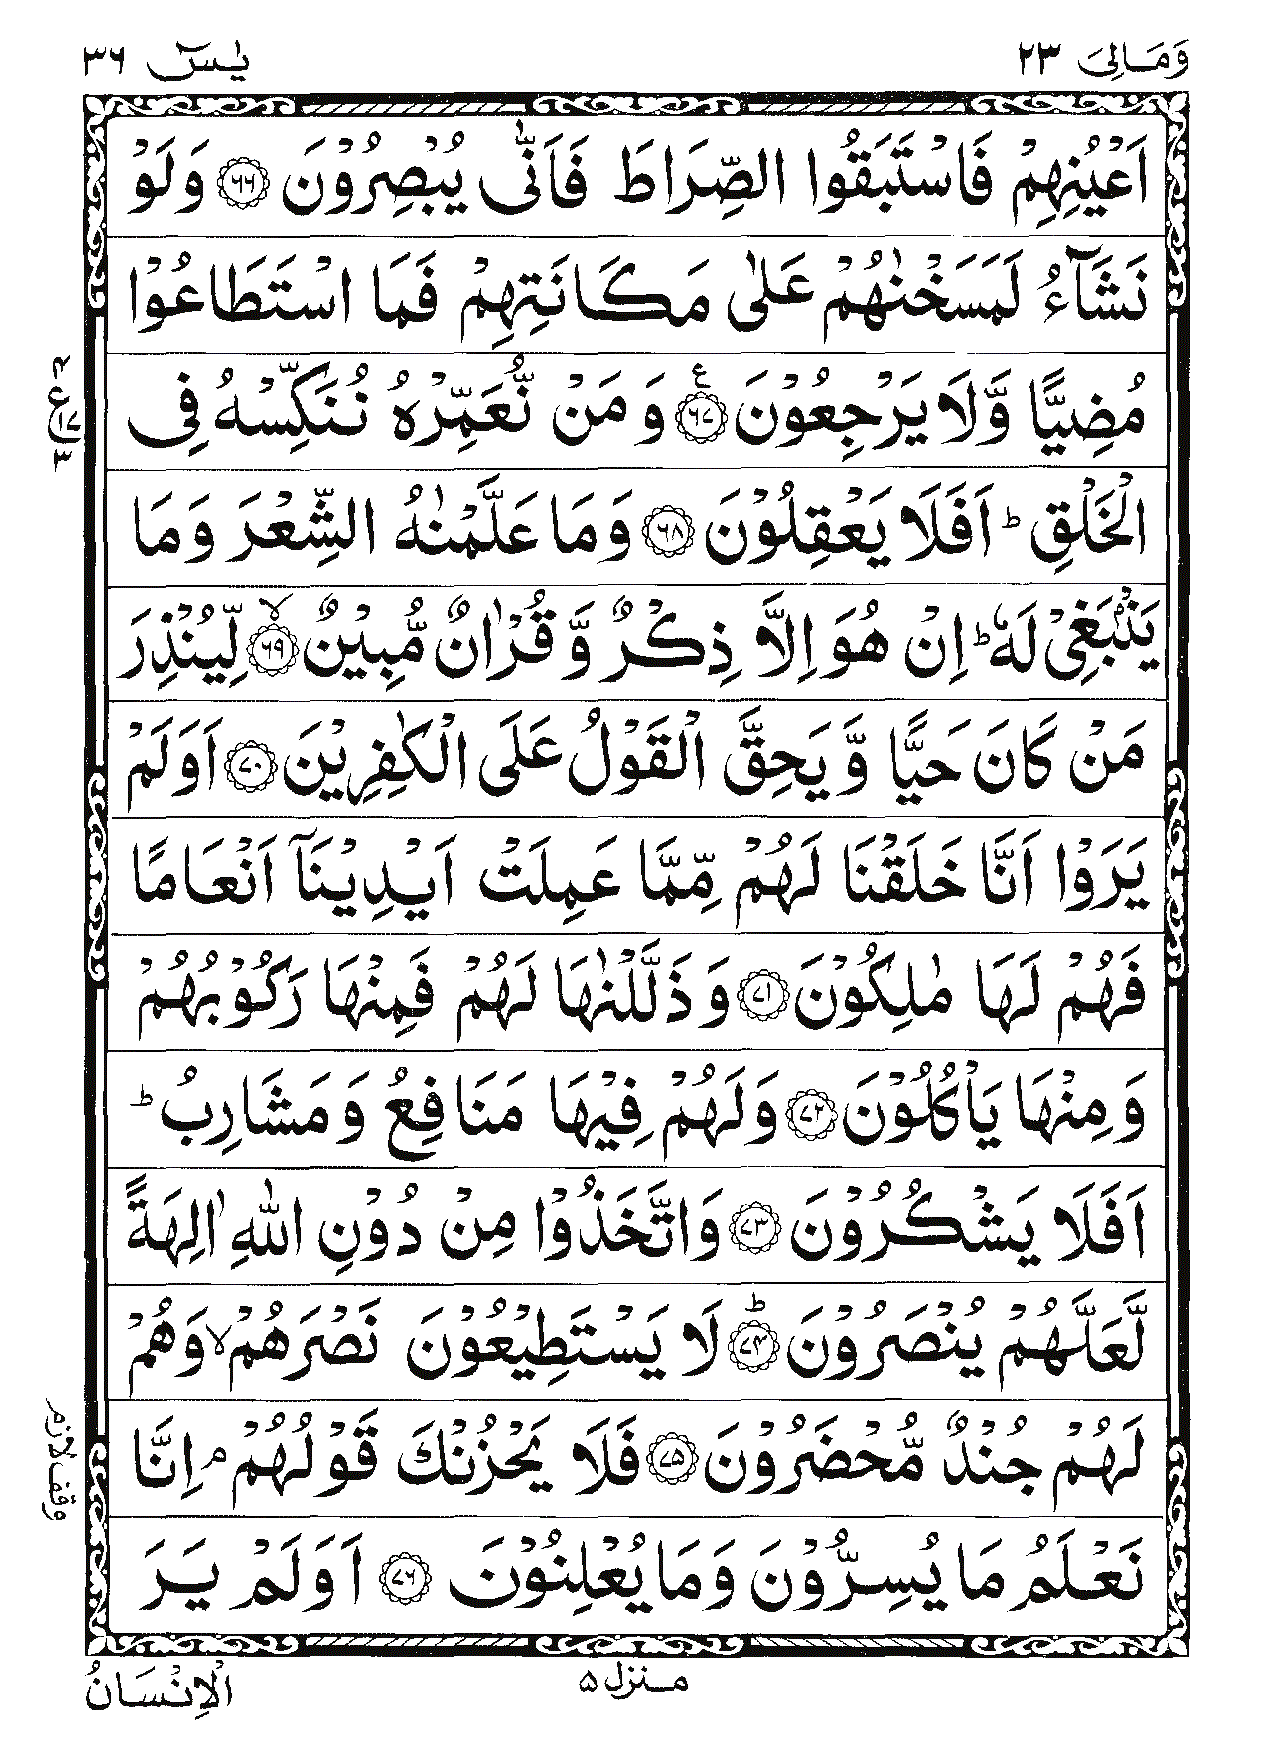 وَمَالِیَ ٢٣
یٰسٓ ٣٦
اَعْیُنِهِمْ فَاسْتَبَقُوا الصِّرَاطَ فَاَنّٰی یُبْصِرُوْنَ ﴿٦٦﴾ وَلَوْ
نَشَآءُ لَمَسَخْنٰهُمْ عَلٰی مَكَانَتِهِمْ فَمَا اسْتَطَاعُوْا
مُضِیًّا وَّلَا یَرْجِعُوْنَ ﴿٦٧﴾ ع وَ مَنْ نُّعَمِّرْهُ نُنَكِّسْهُ فِی
الْخَلْقِ ؕ اَفَلَا یَعْقِلُوْنَ ﴿٦٨﴾ وَمَا عَلَّمْنٰهُ الشِّعْرَ وَمَا
یَنْۢبَغِیْ لَهٗ ؕ اِنْ هُوَ اِلَّا ذِكْرٌ وَّ قُرْاٰنٌ مُّبِیْنٌ ﴿٦٩﴾ ۙ لِّیُنْذِرَ
مَنْ كَانَ حَیًّا وَّ یَحِقَّ الْقَوْلُ عَلَی الْكٰفِرِیْنَ ﴿٧٠﴾ اَوَلَمْ
یَرَوْا اَنَّا خَلَقْنَا لَهُمْ مِّمَّا عَمِلَتْ اَیْدِیْنَاۤ اَنْعَامًا
فَهُمْ لَهَا مٰلِكُوْنَ ﴿٧١﴾ وَ ذَلَّلْنٰهَا لَهُمْ فَمِنْهَا رَكُوْبُهُمْ
وَمِنْهَا یَاْكُلُوْنَ ﴿٧٢﴾ وَلَهُمْ فِیْهَا مَنَافِعُ وَ مَشَارِبُ ؕ
اَفَلَا یَشْكُرُوْنَ ﴿٧٣﴾ وَاتَّخَذُوْا مِنْ دُوْنِ اللّٰهِ اٰلِهَةً
لَّعَلَّهُمْ یُنْصَرُوْنَ ﴿٧٤﴾ ؕ لَا یَسْتَطِیْعُوْنَ نَصْرَهُمْ ۙ وَهُمْ
لَهُمْ جُنْدٌ مُّحْضَرُوْنَ ﴿٧٥﴾ فَلَا یَحْزُنْكَ قَوْلُهُمْ ۘ اِنَّا
نَعْلَمُ مَا یُسِرُّوْنَ وَمَا یُعْلِنُوْنَ ﴿٧٦﴾ اَوَلَمْ یَرَ
ع
١٧
٣
وقف لازم
منزل ٥
الْاِنْسَانُ